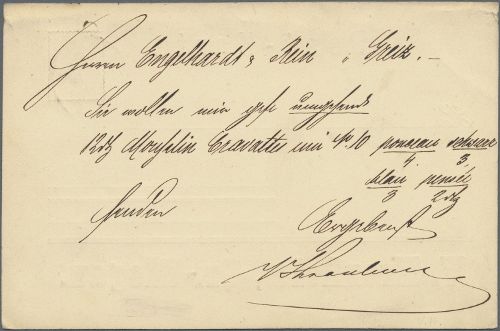 Herrn Engelhardt & Rein, Greiz.
Sie wollen mir gefl umgehend
12 dtz Mousselin Cravattes wie No. 10 ponceau schwarz
4 3
blau pensée
3 2 dtz
senden
Ergebenst